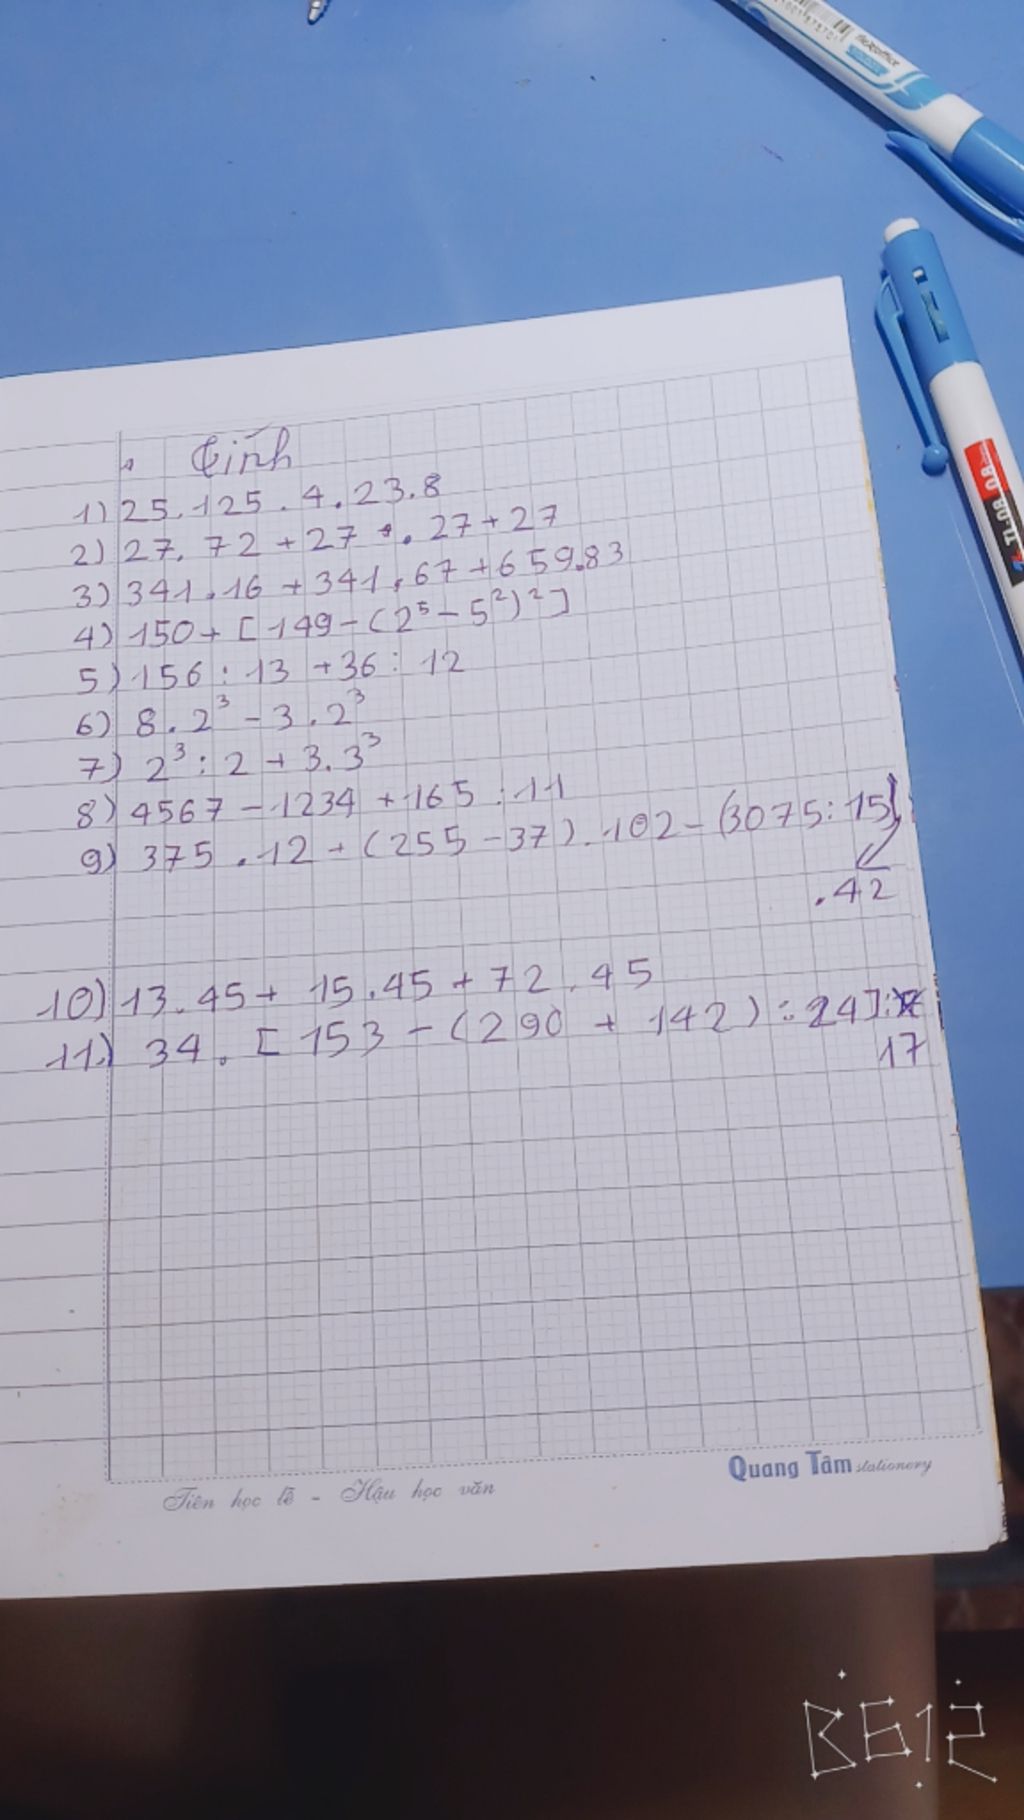 Tính
1) 25.125.4.23.8
2) 27.72+27.27+27
3) 341.16+341.67+659.83
4) 150+[149-(2⁵-5²)²]
5) 156:13+36:12
6) 8.2³-3.2³
7) 2³:2+3.3³
8) 4567-1234+165:11
9) 375.12+(255-37).102-(3075:15)
.42
10) 13.45+15.45+72.45
11) 34.[153-(290+142):24]:
17
Quang Tâm stationery
Tiên học lễ - Hậu học văn
B612